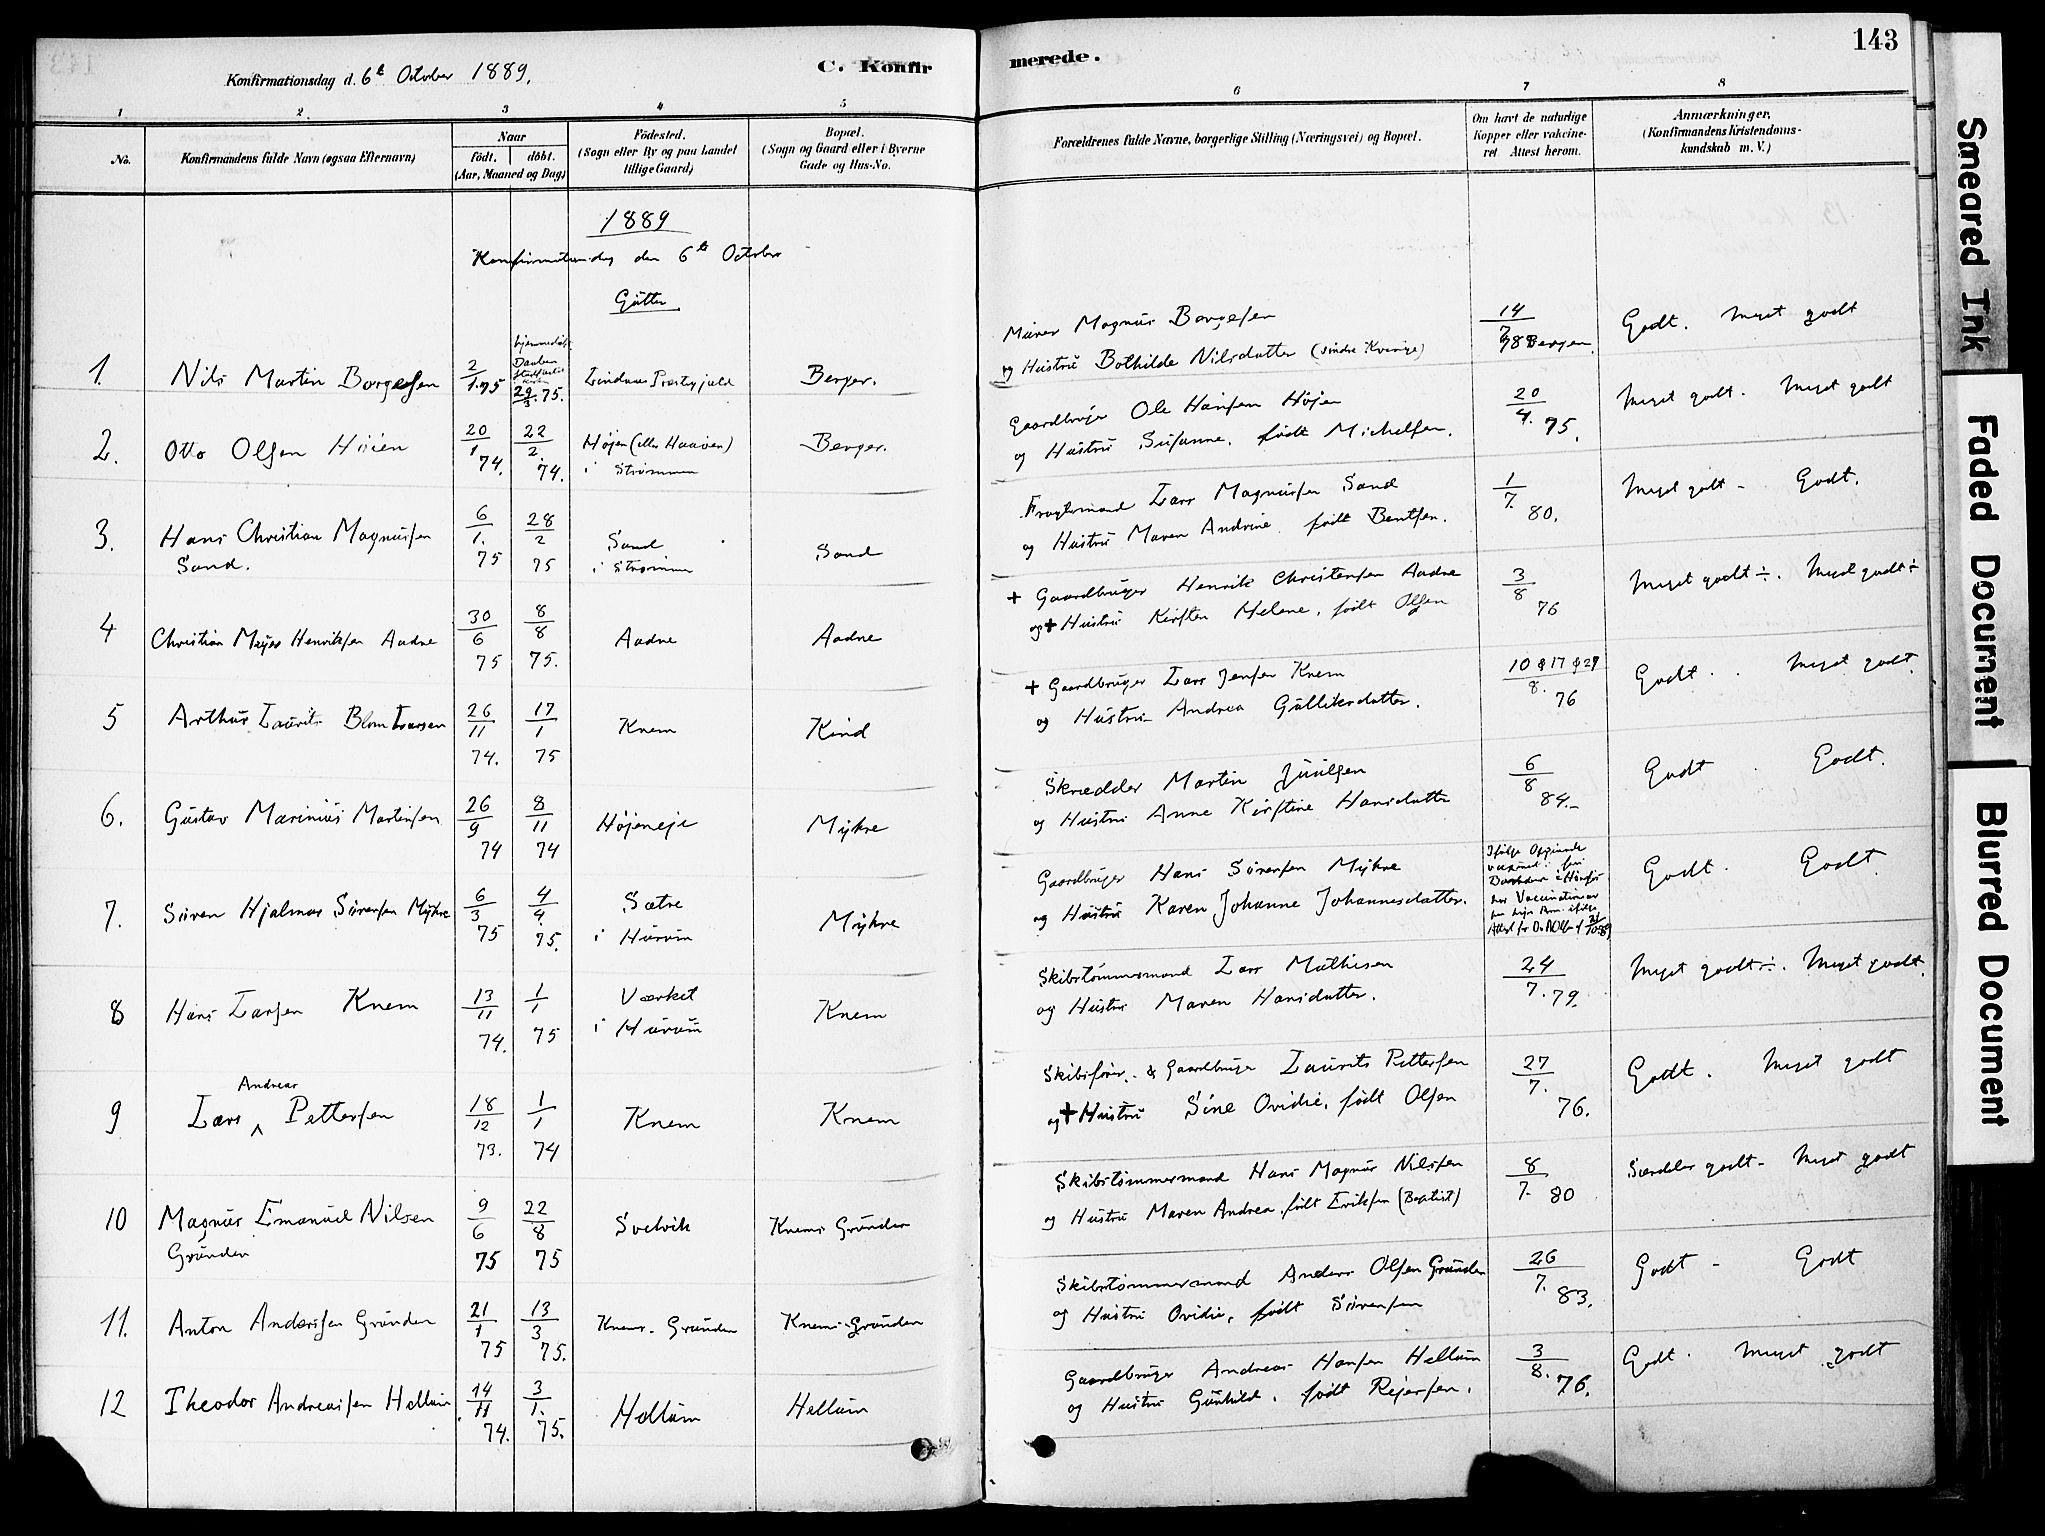 143
Konfirmationsdag d. 6te October 1889.
C. Konfirmerede.
1 2. 3 4 5 6 7 8
No.
Konfirmandens fulde Navn (ogsaa Efternavn)
Naar
født. døbt.
(Aar, Maaned og Dag)
Fødested.
(Sogn eller By og paa Landet
tillige Gaard)
Bopæl.
(Sogn og Gaard eller i Byerne
Gade og Hus-No.
Forældrenes fulde Navne, borgerlige Stilling (Næringsvei) og Bopæl.
Om havt de naturlige
Kopper eller vakcine-
ret. Attest herom.
Anmærkninger.
(Konfirmandens Kristendoms-
kundskab m. V.)
1889
Konfirmationsdag den 6te October
Gutter
1. Nils Martin Borgersen 2/1 75 29/3 75. Lindaas Præstegjeld Berger.
Murer Magnus Borgesen
og Hustru Bothilde Nilsdatter
14/7 Bergen. Godt. Meget godt
2. Otto Olsen Höien 20/1 74. 22/2. 74. Højen (eller Haaven) i Strømmen Berger.
Gaardbruger Ole Hansen Højen
og Hustru Susanne, født Michelsen.
20/4. 75. Meget godt. Meget godt
3. Hans Christian Magnussen Sand. 6/1. 75 28/2 75 Sand i Strømmen Sand
Fragtemand Lars Magnussen Sand
og Hustru Maren Andrine født Bentsen.
1/7. 80. Meget godt - Godt.
4 Christian Mejer Henriksen Aadne 30/6 75 8/8 75. Aadne Aadne
+ Gaardbruger Henrik Christensen Aadne
og + Hustru Kirsten Helene, født Olsen
3/8 76 Meget godt ÷. Meget godt ÷
5 Arthur Laurits Blom Larsen 26/11 74. 17/1 75 Knem Kind
+ Gaardbruger Lars Jensen Knem
og Hustru Andrea Gulliksdatter.
10 & 17 & 21/8. 76 Godt. Meget godt.
6. Gustav Marinius Martinsen 26/9 74 8/11 74 Højeneje Mykre
Skrædder Martin Juulsen
og Hustru Anne Kirstine Hansdatter
6/8 84.- Godt. Godt.
7. Sören Hjalmar Sörensen Mykre 6/3 75 4/4. 75. Sætre i Hurum Mykre
Gaardbruger Hans Sörensen Mykre
og Hustru Karen Johanne Johannesdatter.
Godt. Godt.
8 Hans Larsen Knem 13/11 74. 1/1 75 Værket i Hurum Knem
Skibstömmermand Lars Mathisen
og Hustru Maren Hansdatter.
24/7. 79. Meget godt ÷. Meget godt.
9 Lars Andreas Pettersen 18/12 73. 1/1 74 Knem Knem
Skibsfører - & Gaardbruger Laurits Pettersen
og + Hustru Sine Ovidie, født Olsen
27/7. 76. Godt. Meget godt
10 Magnus Emanuel Nilsen Grunden 9/6 75 22/8 75 Svelvik Knems Grunden
Skibstömmermand Hans Magnus Nilsen
og Hustru Maren Andrea, født Eriksen (Baptist)
8/7. 80 Særdeles godt - Meget godt
11. Anton Andersen Grunden 21/1 75 13/3 75. Knems-Grunden Knems-Grunden
Skibstömmermand Anders Olsen Grunden
og Hustru Ovidie, født Sörensen
26/7. 83. Godt - Godt
12 Theodor Andreassen Hellum 14/11 74. 3/1. 75. Hellum Hellum
Gaardbruger Andreas Hansen Hellum
og Hustru Gunhild, født Rejersen.
3/8. 76. Godt. Meget godt
Smeared Ink
Faded Document
Blurred Document